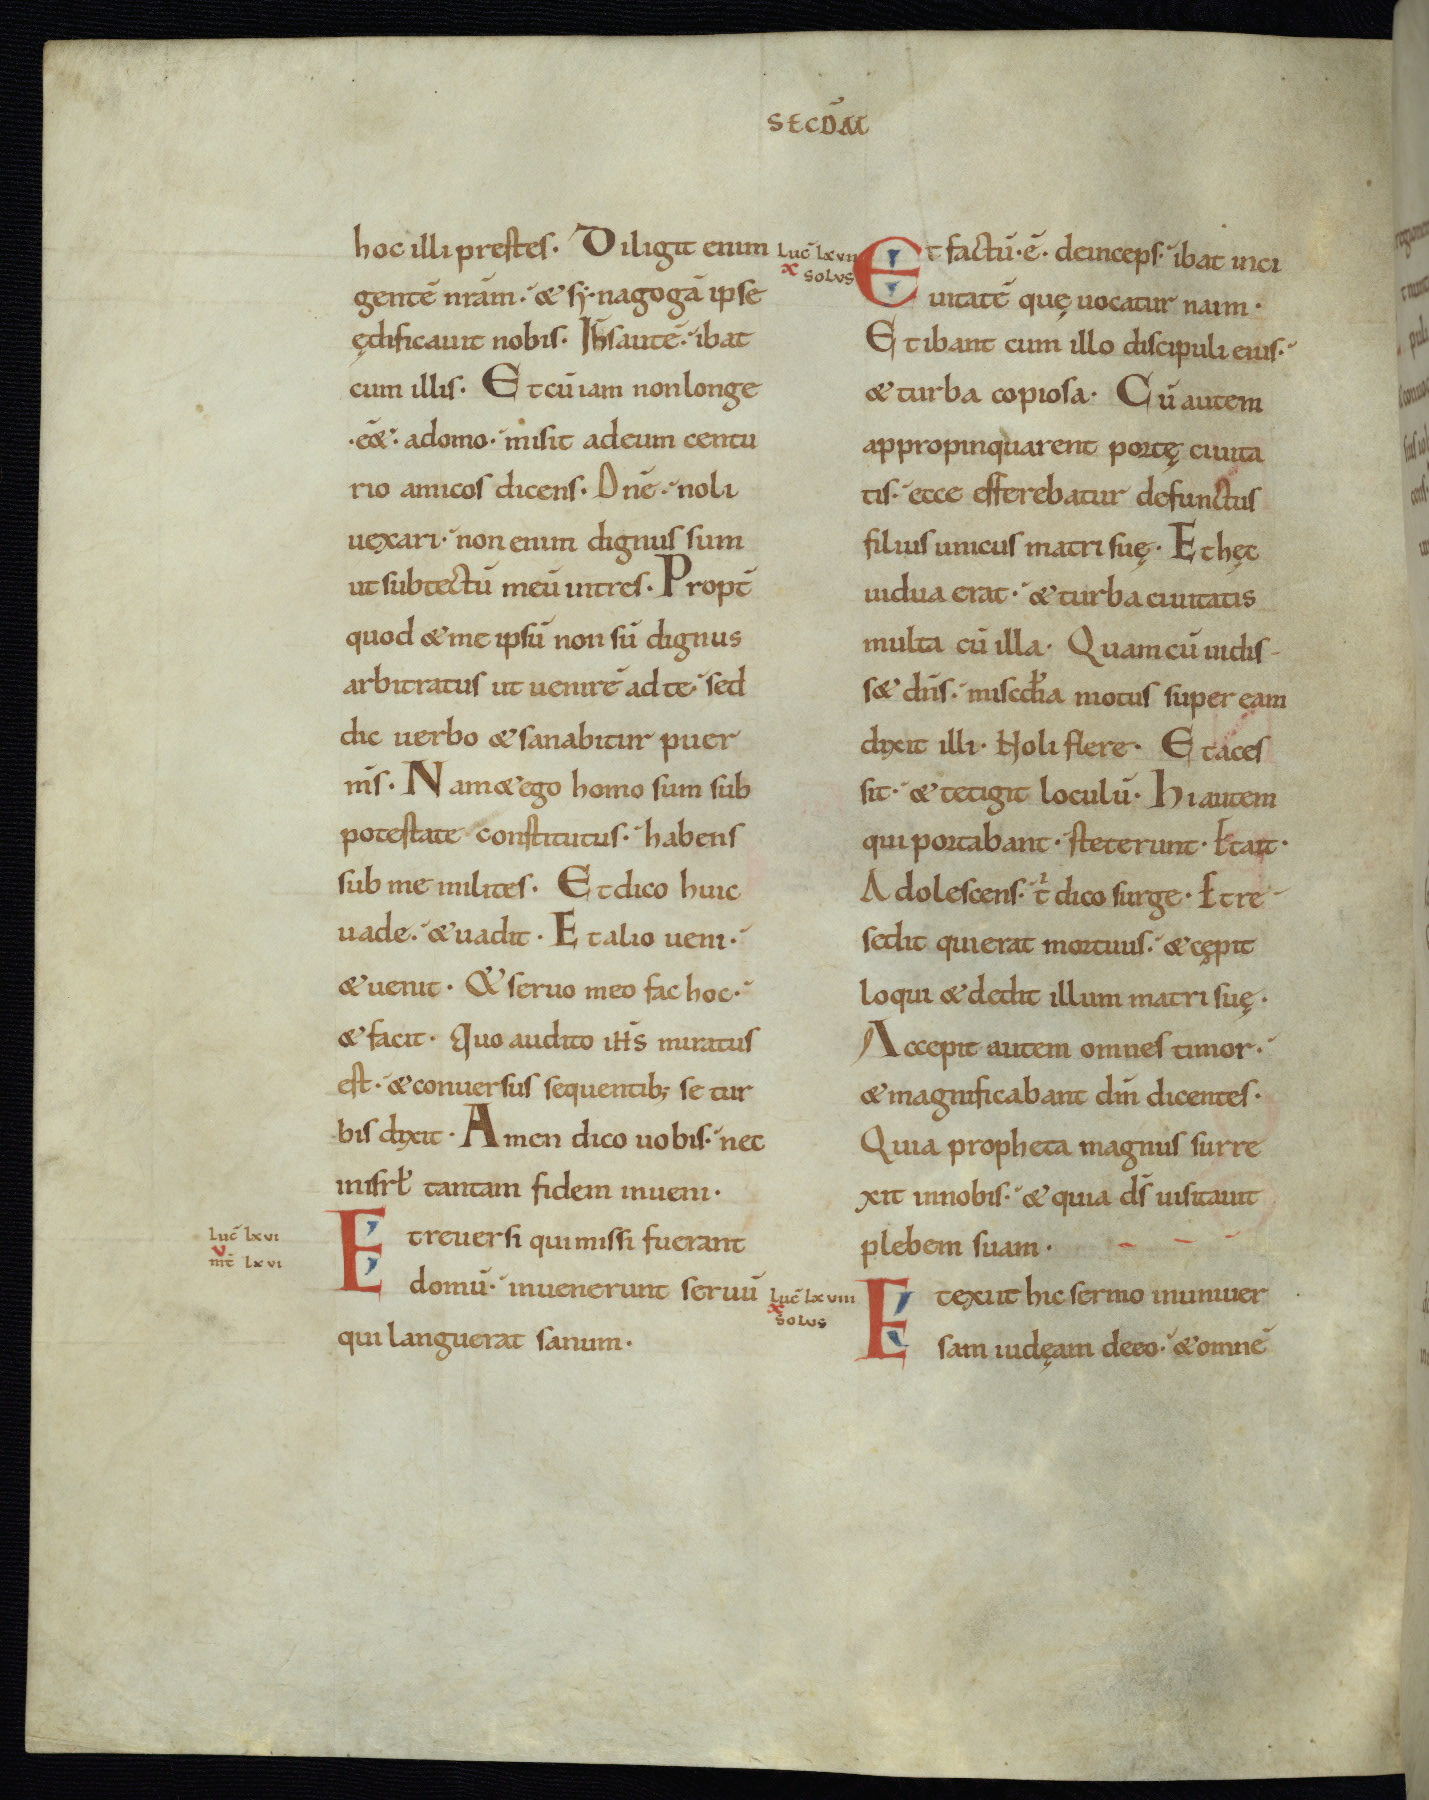 SECDM̄
hoc illi prestes. Diligit enim
gentē nr̄am. & synagogā ipse
ędificauit nobis. Ih̄s autē ibat
cum illis. Et cū iam non longe
.eēt. a domo. misit ad eum centu
rio amicos dicens. Dn̄e. noli
uexari. non enim dignus sum
ut sub tectū meū intres. Propt̄
quod & me ipsū non sū dignus
arbitratus ut uenirē ad te. sed
dic uerbo & sanabitur puer
m̄s. Nam & ego homo sum sub
potestate constitutus. habens
sub me milites. Et dico huic
uade. & uadit. Et alio ueni.
& uenit. & seruo meo fac hoc.
& facit. Quo audito ih̄s miratus
est. & conuersus sequentib; se tur
bis dixit. Amen dico uobis. nec
in isrl̄ tantam fidem inueni.
luc̄ lxvi
v
mt̄ lxvi
Et reuersi qui missi fuerant
domū. inuenerunt seruū
qui languerat sanum.
luc̄ lxvii
x solvs
Et factū .ē. deinceps. ibat in ci
uitatē quę uocatur naim.
Et ibant cum illo discipuli eius.
& turba copiosa. Cū autem
appropinquarent portę ciuita
tis. ecce efferebatur defunctus
filius unicus matri suę. Et hęc
uidua erat. & turba ciuitatis
multa cū illa. Quam cū uidis-
s& dn̄s. misc̄dia motus super eam
dixit illi. Noli flere. Et aces
sit. & tetigit loculū. Hi autem
qui portabant. steterunt. Et ait.
Adolescens. t̄ dico surge. Et re
sedit qui erat mortuus. & cępit
loqui & dedit illum matri suę.
Accepit autem omnes timor.
& magnificabant dm̄ dicentes.
Quia propheta magnus surre
xit in nobis. & quia ds̄ uisitauit
plebem suam.
luc̄ lxviii
x
solvs
Et exiit hic sermo in uniuer
sam iudęam de eo. & omnē